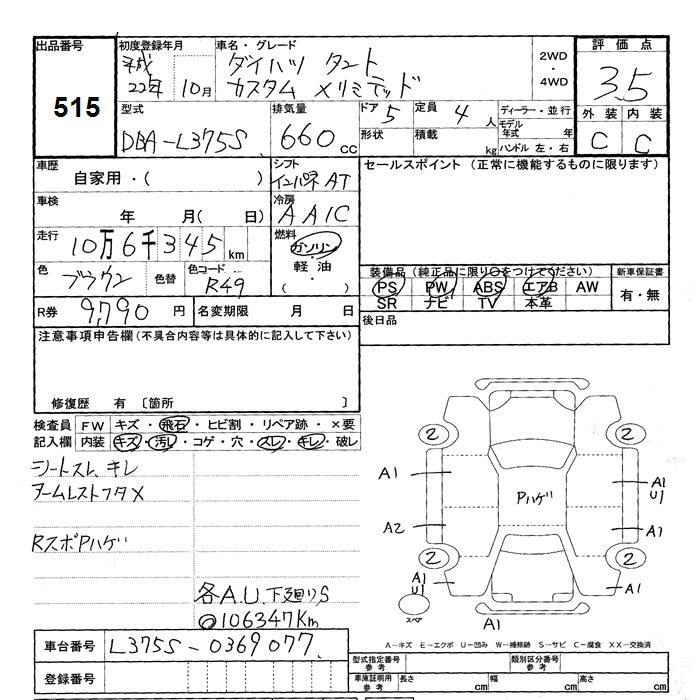 出品番号
515
初度登録年月
平成
22年 10月
車名・グレード
ダイハツ タント
カスタム Xリミテッド
2WD
・
4WD
評価点
3.5
外装 内装
C C
型式
DBA-L375S
排気量
660cc
ドア 5
定員 4人
形状
積載 kg
ディーラー・並行
モデル年式 年
ハンドル 左・右
車歴
自家用・( )
シフト
インパネAT
セールスポイント (正常に機能するものに限ります)
車検
年 月( 日)
冷房
AAC
走行
10万6千345km
燃料
ガソリン
・
軽油
・
( )
色
ブラウン
色替
色コード
R49
装備品 (純正品に限り○をつけてください)
PS PW ABS エアB AW
SR ナビ TV 本革
新車保証書
有・無
R券 9,790円
名変期限 月 日
後日品
注意事項申告欄(不具合内容等は具体的に記入して下さい)
修復歴 有 〔箇所 〕
検査員記入欄
FW キズ・飛石・ヒビ割・リペア跡・×要
内装 キズ・汚レ・コゲ・穴・スレ・キレ・破レ
シートスレ、キレ
アームレストフタX
RスポPハゲ
各A.U.下廻りS
106347Km
2 2
A1
A1
U1
Pハゲ
A2
A1
2 2
A1
U1
A1
スペア
A1
A-キズ E-エクボ U-凹み W-補修跡 S-サビ C-腐食 XX-交換済
車台番号
L375S-0369077
登録番号
型式指定番号
参考
類別区分番号
参考
車庫証明用
参考
長さ cm
幅 cm
高さ cm